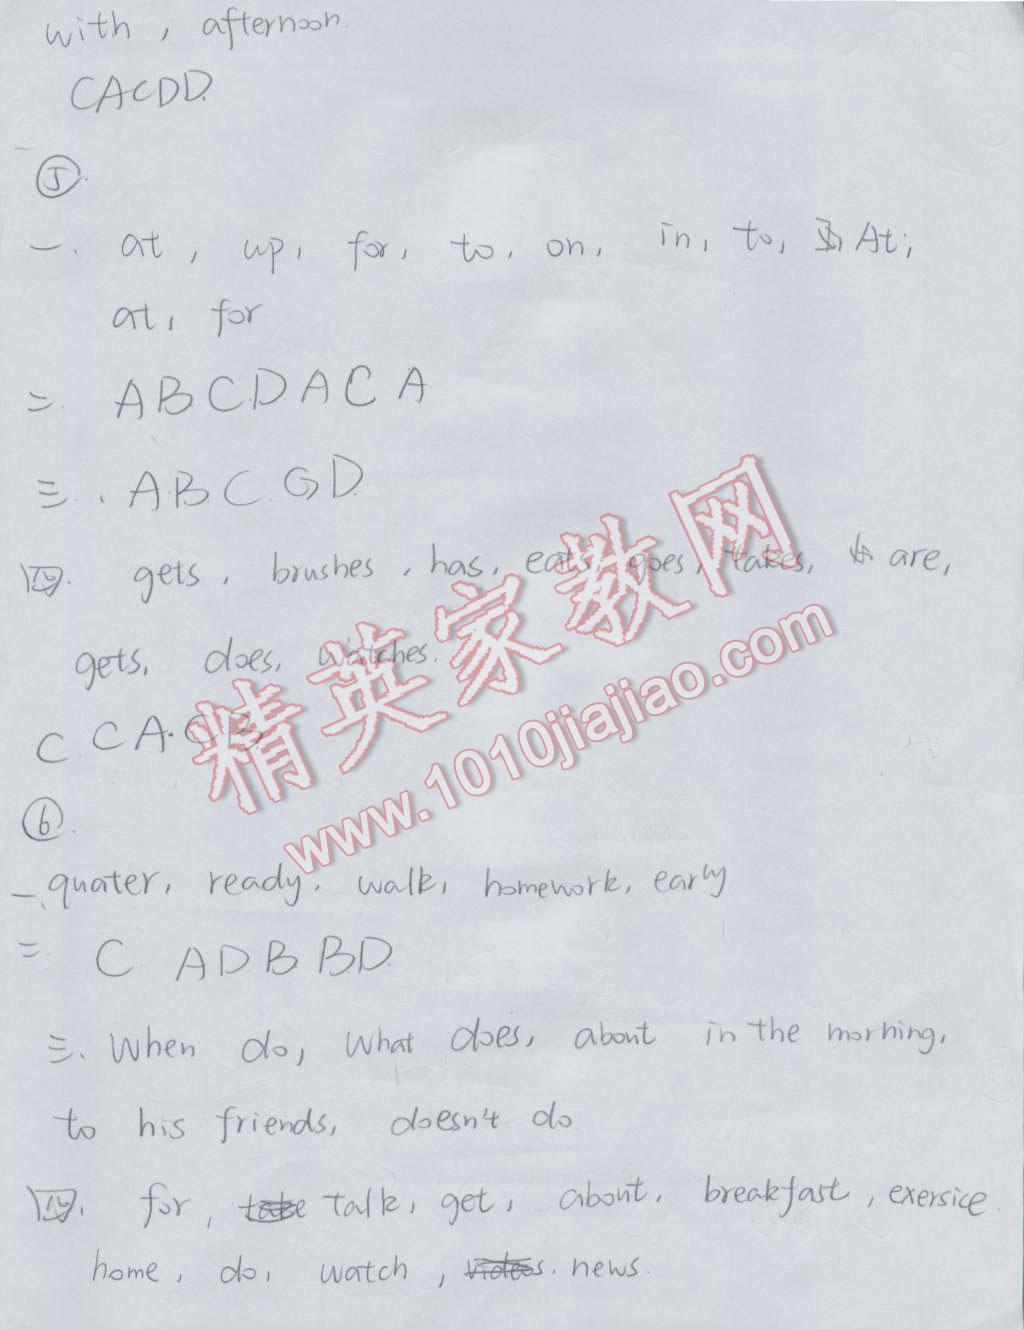 with, afternoon.
CACDD.
⑤.
一. at, up, for, to, on, in, to, At,
at, for
二. ABCDACA
三. ABCGD
四. gets, brushes, has, eats, goes, takes, are,
gets, does, watches.
C CA.CB
⑥.
一. quater, ready, walk, homework, early
二. C ADBBD
三. When do, What does, about in the morning,
to his friends, doesn't do
四. for, talk, get, about, breakfast, exersice
home, do, watch, news.
精英家教网
www.1010jiajiao.com